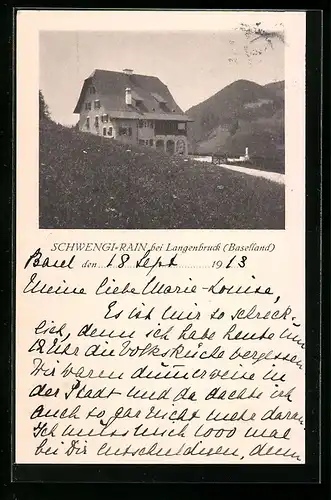 SCHWENGI-RAIN bei Langenbruck (Baselland)
Basel den 18 Sept 1913
Meine liebe Marie-Louise,
Es ist mir so schreck-
lich, denn ich habe heute um
12 Uhr die Volksküche vergessen
Wir waren dummerweise in
der Stadt und da dachte ich
auch so gar nicht mehr daran.
Ich muss mich 1000 mal
bei Dir entschuldigen, denn